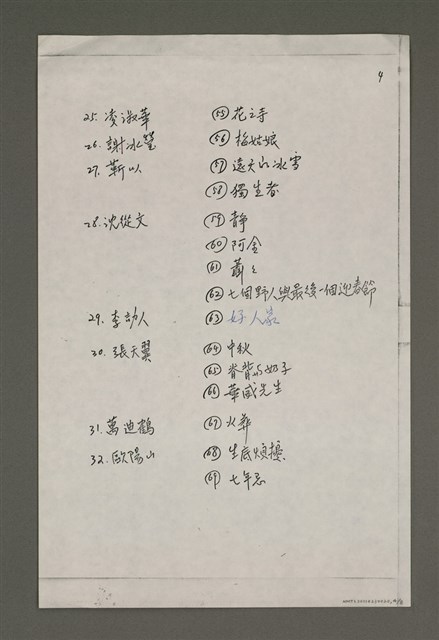 4
25. 凌淑華 (55) 花之寺
26. 謝冰瑩 (56) 梅姑娘
27. 靳以 (57) 遠天的冰雪
(58) 獨生者
28. 沈從文 (59) 靜
(60) 阿金
(61) 蕭々
(62) 七個野人與最後一個迎春節
29. 李劼人 (63) 好人家
30. 張天翼 (64) 中秋
(65) 脊背与奶子
(66) 華威先生
31. 萬迪鶴 (67) 火葬
32. 歐陽山 (68) 生底煩擾
(69) 七年忌